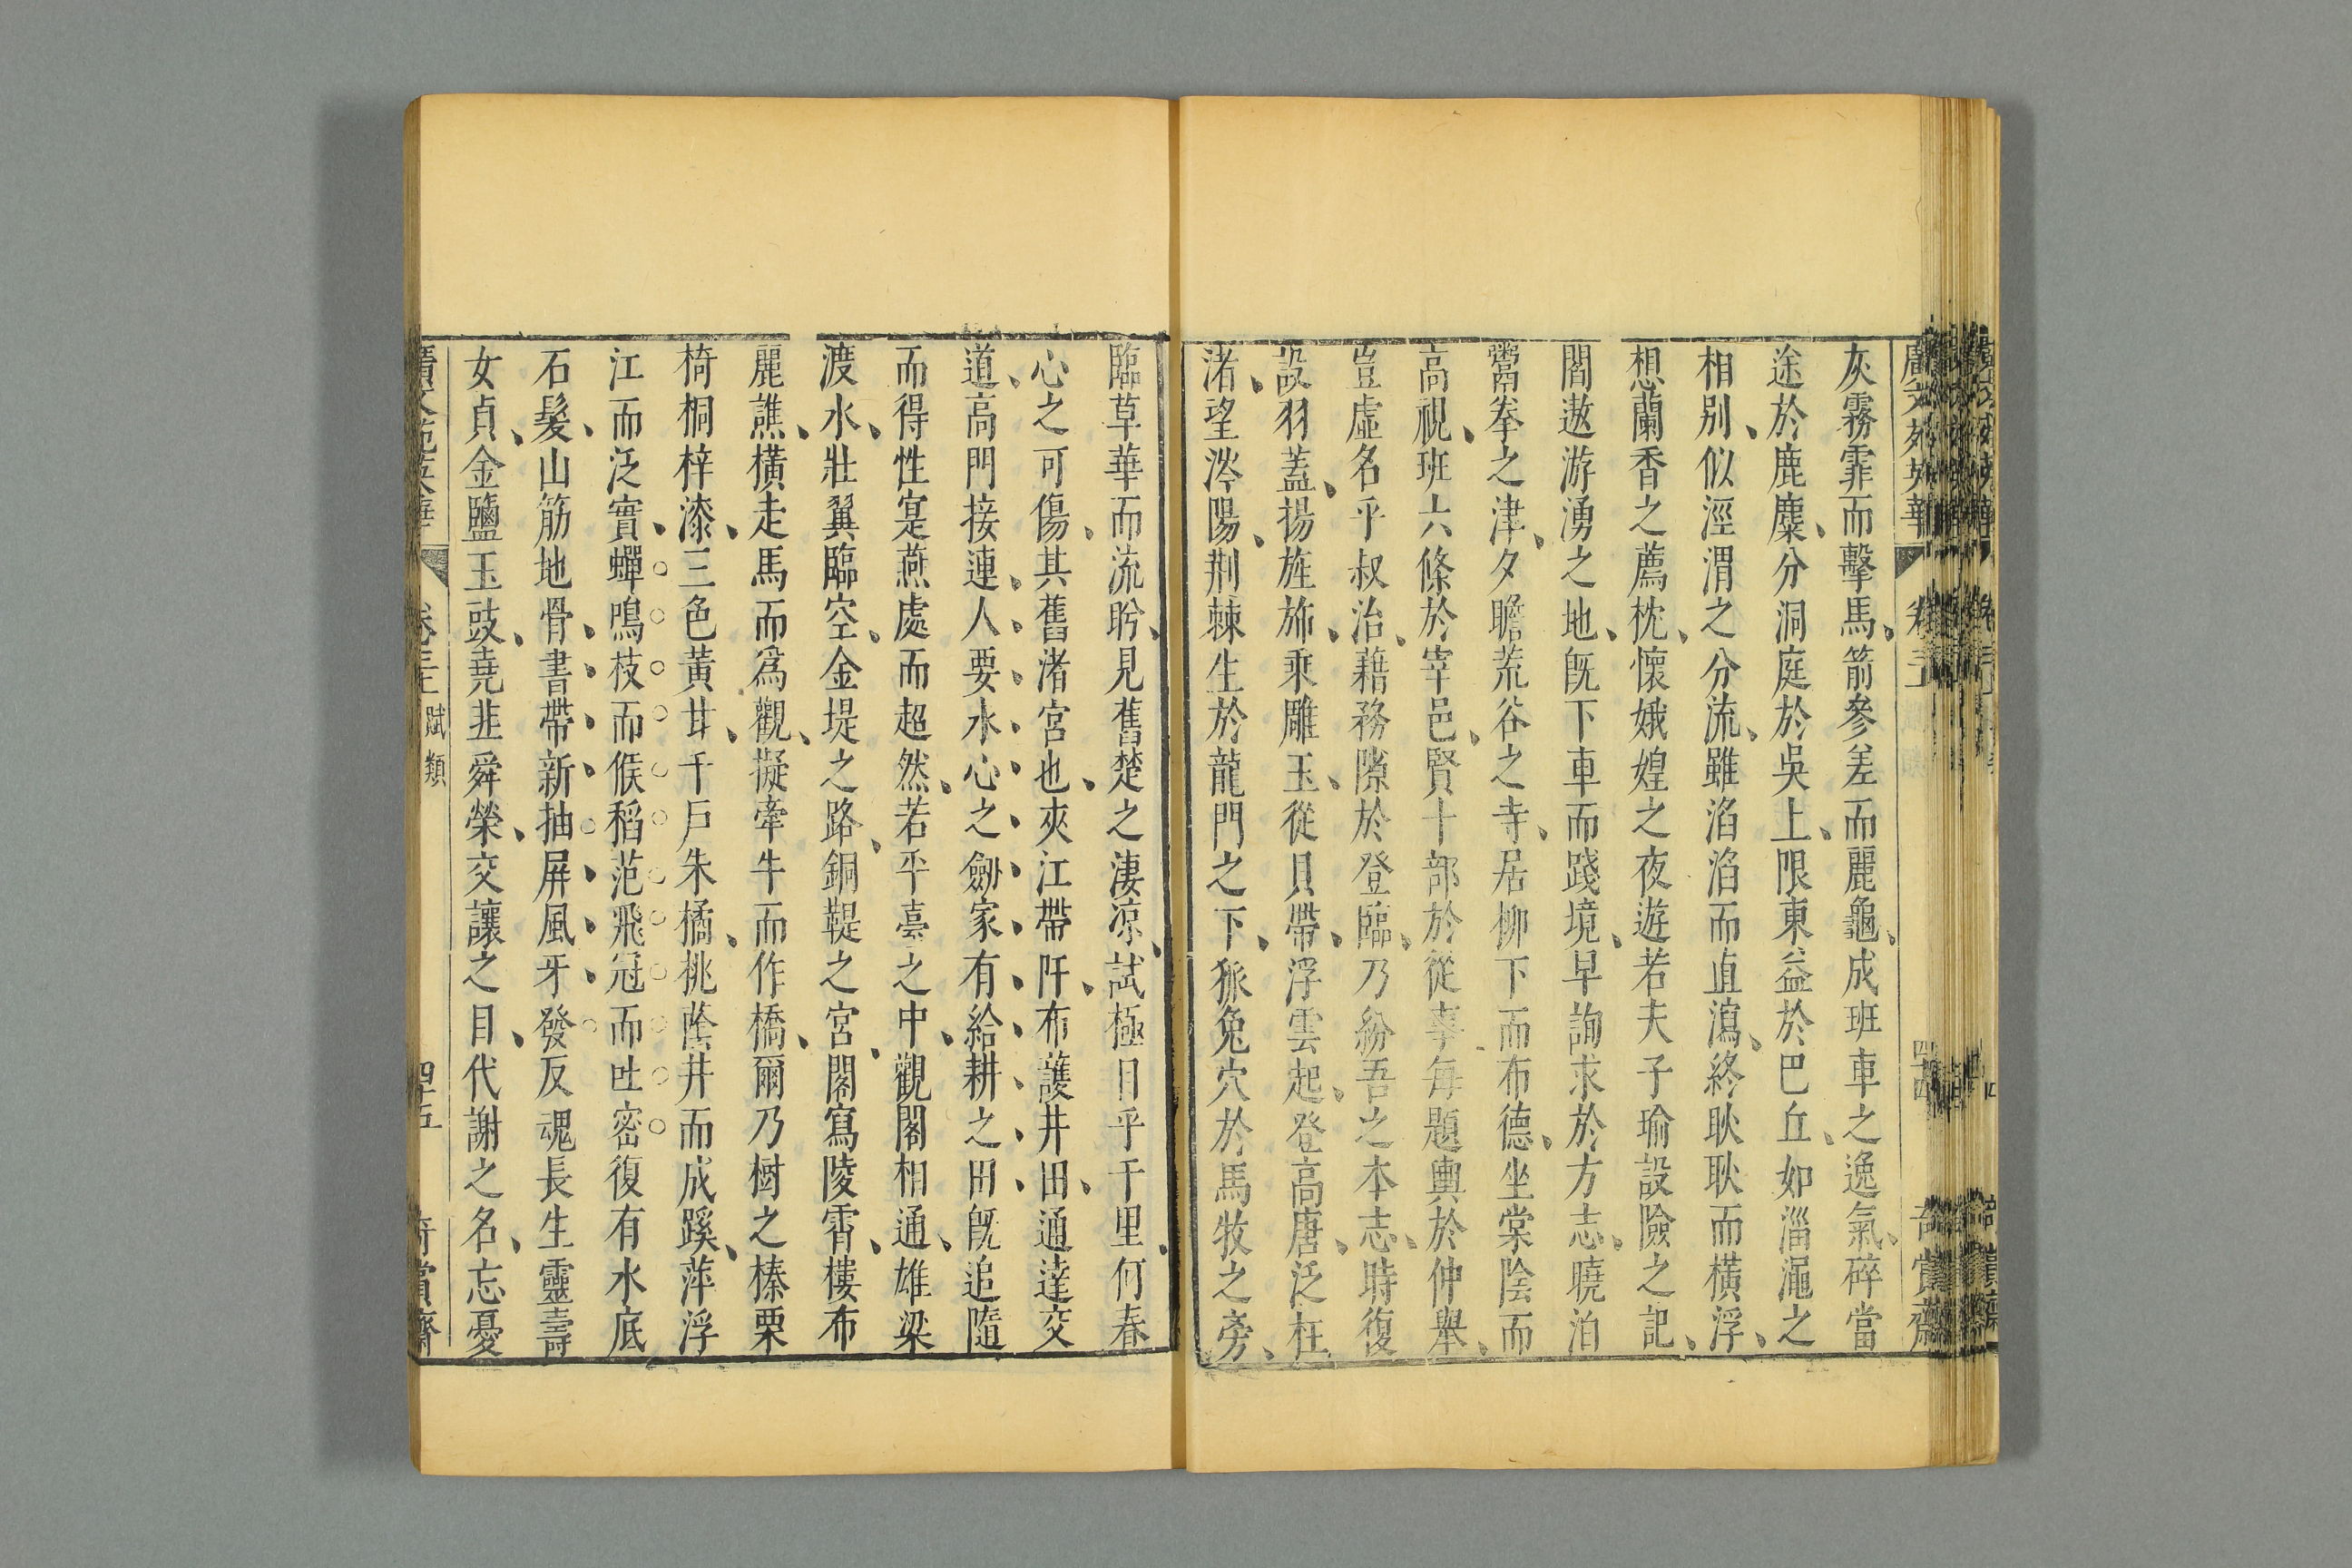 灰霧霏而擊馬箭參差而麗龜成班車之逸氣碎當
途於鹿麋分洞庭於吳上限東益於巴丘如淄澠之
相别似涇渭之分流雖滔滔而直瀉終耿耿而橫浮
想蘭香之薦枕懷娥媓之夜遊若夫子瑜設險之記
閻遨游湧之地旣下車而踐境早詢求於方志曉泊
鬻拳之津夕瞻荒谷之寺居柳下而布德坐棠陰而
高視班六條於宰邑賢十部於從事每題輿於仲舉
豈虛名乎叔治藉務隙於登臨乃紛吾之本志時復
設羽蓋揚旌斾乘雕玉從貝帶浮雲起登高唐泛枉
渚望涔陽荆棘生於龍門之下狐兔穴於馬牧之旁
臨草華而流盻見舊楚之淒凉試極目乎千里何春
心之可傷其舊渚宮也夾江帶阡布護井田通逹交
道高門接連人要水心之劒家有給耕之田旣追隨
而得性寔燕處而超然若乎臺之中觀閣相通雄梁
渡水壯翼臨空金堤之路銅鞮之宮閣寫陵霄樓布
麗譙橫走馬而爲觀擬牽牛而作橋爾乃樹之榛栗
椅桐梓漆三色黃甘千戶朱橘桃蔭井而成蹊萍浮
江而泛實蟬鳴枝而候稻范飛冠而吐密復有水底
石髮山筋地骨書帶新抽屏風牙發反魂長生靈壽
女貞金鹽玉豉堯韭舜榮交讓之目代謝之名忘憂
廣文苑英華 卷三 賦類 四十五 奇賞齋